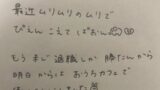 最近ムリムリのムリで
ぴえんこえてぱおん
もうまぢ退職しか勝たんから
明日からはおうちカフェで